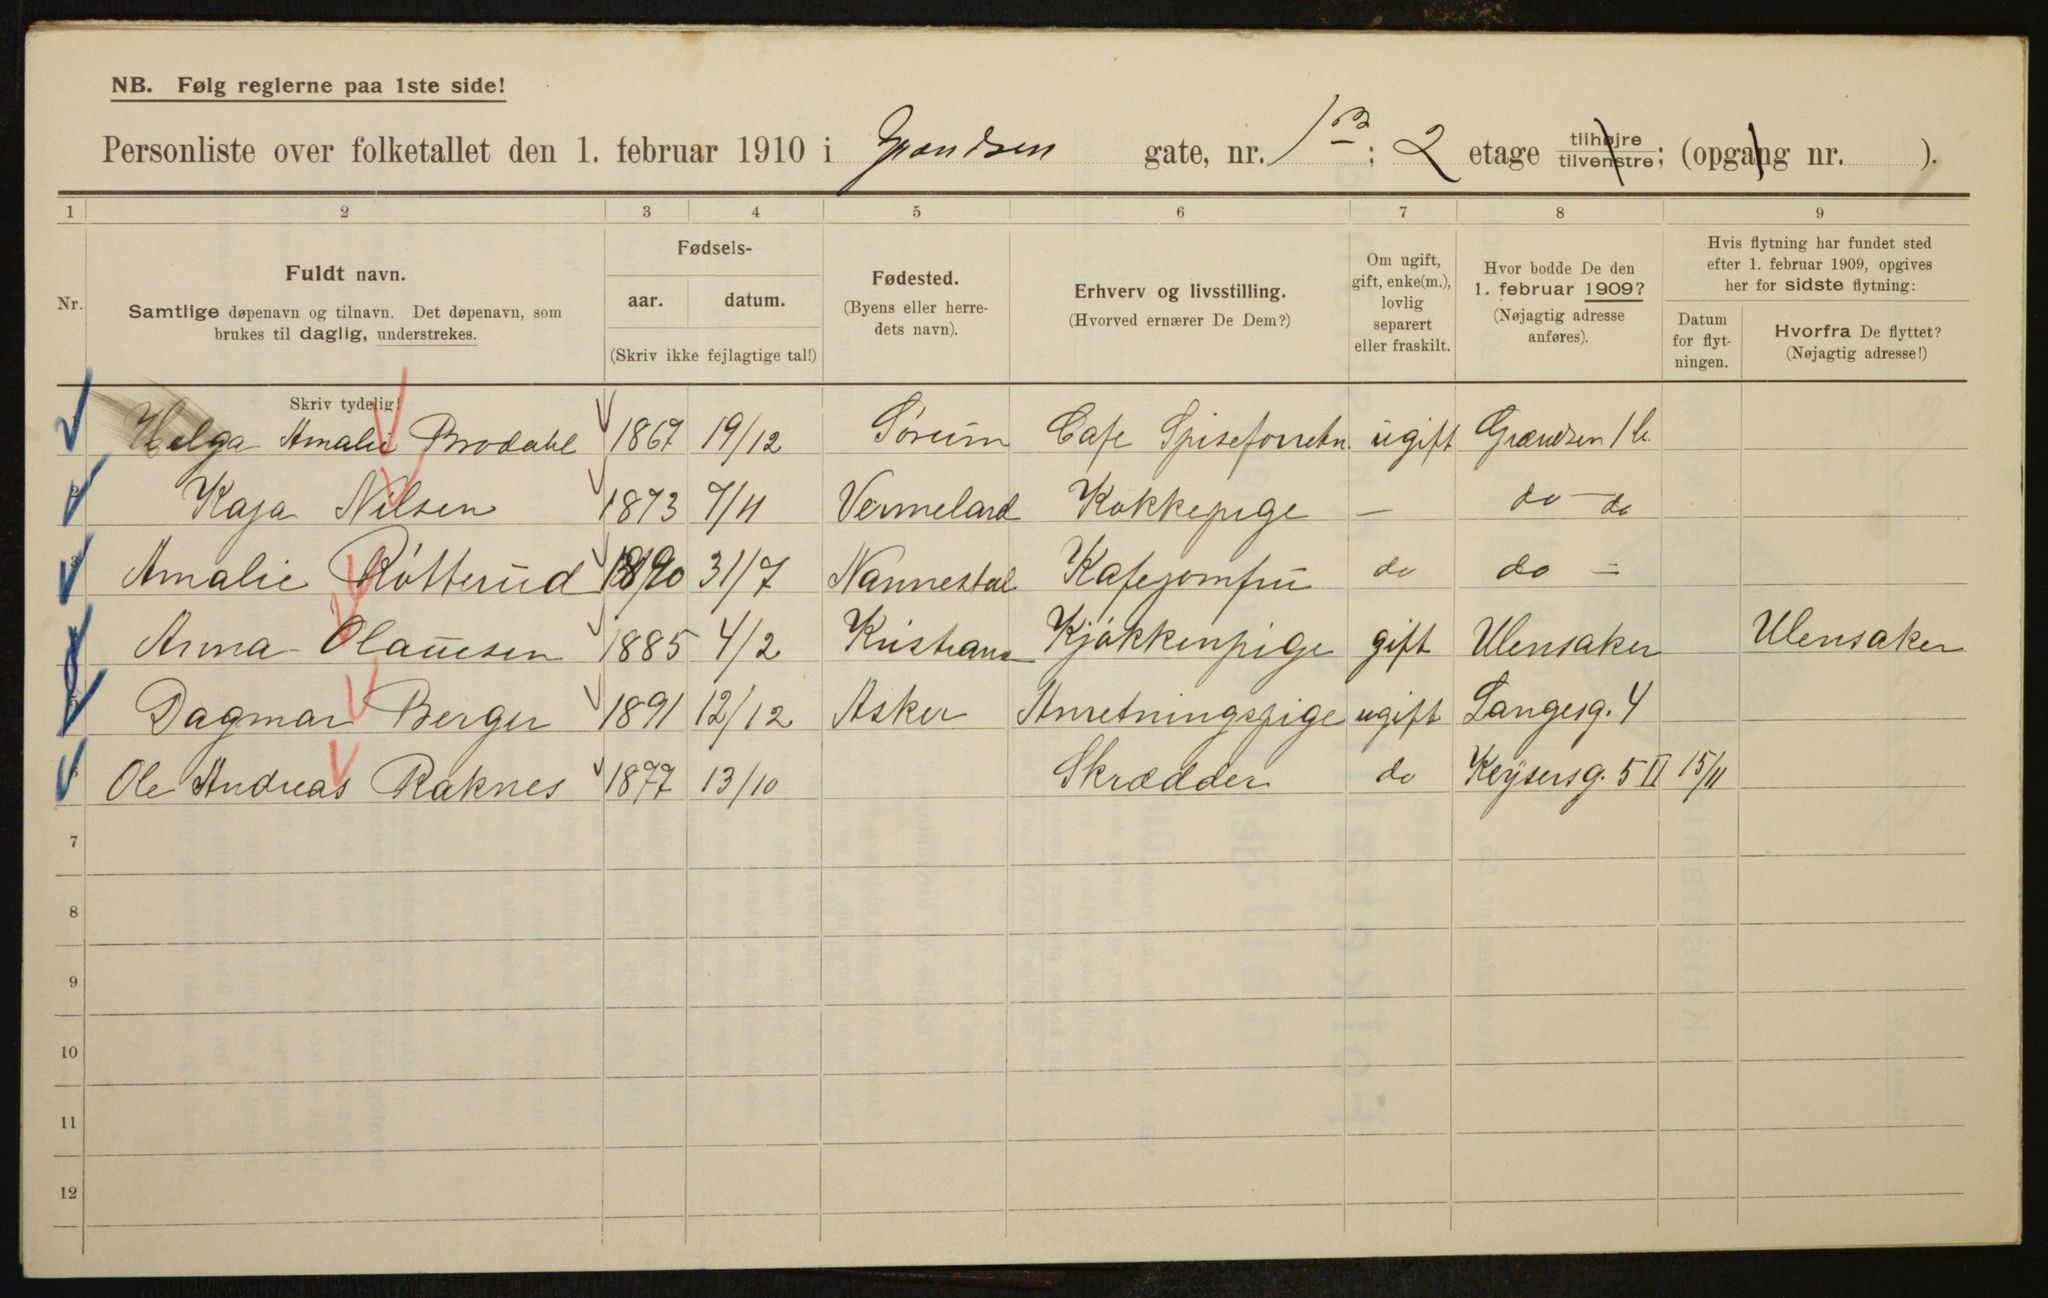 NB. Følg reglerne paa 1ste side!
Personliste over folketallet den 1. februar 1910 i Grændsen gate, nr. 1 B; 2 etage tilhøjre tilvenstre; (opgang nr. ).
1 2 3 4 5 6 7 8 9
Nr.
Fuldt navn.
Samtlige døpenavn og tilnavn. Det døpenavn, som
brukes til daglig, understrekes.
Skriv tydelig!
Fødsels-
aar. datum.
(Skriv ikke fejlagtige tal!)
Fødested.
(Byens eller herre-
dets navn).
Erhverv og livsstilling.
(Hvorved ernærer De Dem?)
Om ugift,
gift, enke(m.),
lovlig
separert
eller fraskilt.
Hvor bodde De den
1. februar 1909?
(Nøjagtig adresse
anføres).
Hvis flytning har fundet sted
efter 1. februar 1909, opgives
her for sidste flytning:
Datum
for flyt-
ningen.
Hvorfra De flyttet?
(Nøjagtig adresse!)
Helga Amalie Brodahl 1867 19/12 Sørum Cafe Spiseforretn. ugift Grændsen 1 b.
2 Kaja Nilsen 1873 7/11 Vermeland Kokkepige — do — do
3 Amalie Røtterud 1890 31/7 Nannestad Kafejomfru do do —
Anna Olaussen 1885 4/2 Kristiania Kjøkkenpige gift Ulensaker Ulensaker
5 Dagmar Berger 1891 12/12 Asker Anretningspige ugift Langesg. 4
Ole Andreas Raknes 1877 13/10 Skrædder do Keysersg. 5 II 15/11
7
8
9
10
11
12